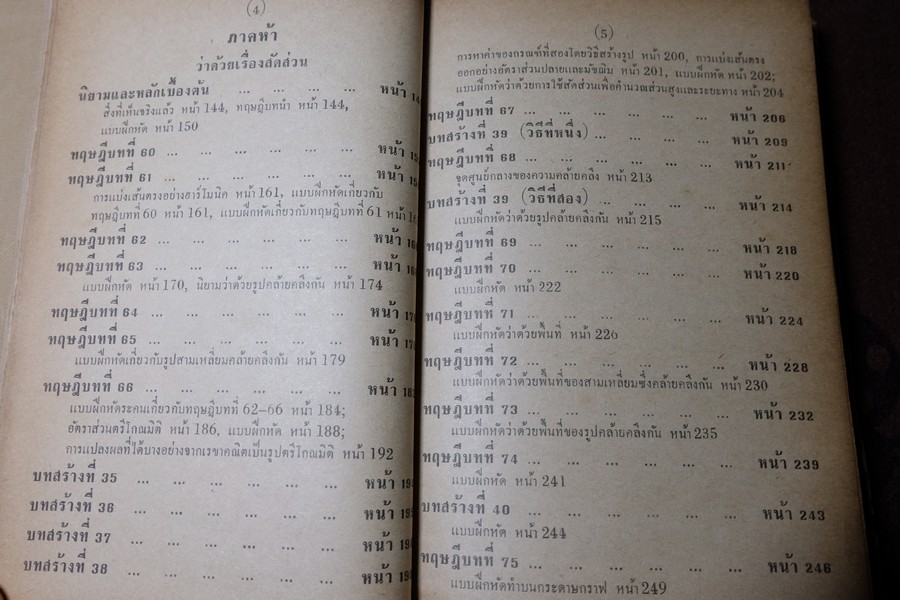 (4)
ภาคห้า
ว่าด้วยเรื่องสัดส่วน
นิยามและหลักเบื้องต้น ... ... ... ... หน้า
สิ่งที่เห็นจริงแล้ว หน้า 144, ทฤษฎีบทนำ หน้า 144,
แบบฝึกหัด หน้า 150
ทฤษฎีบทที่ 60 ... ... ... ... ... หน้า
ทฤษฎีบทที่ 61 ... ... ... ... ... หน้า
การแบ่งเส้นตรงอย่างฮาร์โมนิค หน้า 161, แบบฝึกหัดเกี่ยวกับ
ทฤษฎีบทที่ 60 หน้า 161, แบบฝึกหัดเกี่ยวกับทฤษฎีบทที่ 61 หน้า
ทฤษฎีบทที่ 62 ... ... ... ... ... หน้า
ทฤษฎีบทที่ 63 ... ... ... ... ... หน้า
แบบฝึกหัด หน้า 170, นิยามว่าด้วยรูปคล้ายคลึงกัน หน้า 174
ทฤษฎีบทที่ 64 ... ... ... ... ... หน้า
ทฤษฎีบทที่ 65 ... ... ... ... ... หน้า
แบบฝึกหัดเกี่ยวกับรูปสามเหลี่ยมคล้ายคลึงกัน หน้า 179
ทฤษฎีบทที่ 66 ... ... ... ... ... หน้า
แบบฝึกหัดระคนเกี่ยวกับทฤษฎีบทที่ 62–66 หน้า 184;
อัตราส่วนตรีโกณมิติ หน้า 186, แบบฝึกหัด หน้า 188;
การแปลงผลที่ได้บางอย่างจากเรขาคณิตเป็นรูปตรีโกณมิติ หน้า 192
บทสร้างที่ 35 ... ... ... ... ... หน้า
บทสร้างที่ 36 ... ... ... ... ... หน้า
บทสร้างที่ 37 ... ... ... ... ... หน้า
บทสร้างที่ 38 ... ... ... ... ... หน้า
(5)
การหาค่าของกรณฑ์ที่สองโดยวิธีสร้างรูป หน้า 200, การแบ่งเส้นตรง
ออกอย่างอัตราส่วนปลายและมัชฌิม หน้า 201, แบบฝึกหัด หน้า 202;
แบบฝึกหัดว่าด้วยการใช้สัดส่วนเพื่อคำนวณส่วนสูงและระยะทาง หน้า 204
ทฤษฎีบทที่ 67 ... ... ... ... ... หน้า 206
บทสร้างที่ 39 (วิธีที่หนึ่ง) ... ... ... หน้า 209
ทฤษฎีบทที่ 68 ... ... ... ... ... หน้า 211
จุดศูนย์กลางของความคล้ายคลึง หน้า 213
บทสร้างที่ 39 (วิธีที่สอง) ... ... ... ... หน้า 214
แบบฝึกหัดว่าด้วยรูปคล้ายคลึงกัน หน้า 215
ทฤษฎีบทที่ 69 ... ... ... ... ... หน้า 218
ทฤษฎีบทที่ 70 ... ... ... ... ... หน้า 220
แบบฝึกหัด หน้า 222
ทฤษฎีบทที่ 71 ... ... ... ... ... หน้า 224
แบบฝึกหัดว่าด้วยพื้นที่ หน้า 226
ทฤษฎีบทที่ 72 ... ... ... ... ... หน้า 228
แบบฝึกหัดว่าด้วยพื้นที่ของสามเหลี่ยมซึ่งคล้ายคลึงกัน หน้า 230
ทฤษฎีบทที่ 73 ... ... ... ... ... หน้า 232
แบบฝึกหัดว่าด้วยพื้นที่ของรูปคล้ายคลึงกัน หน้า 235
ทฤษฎีบทที่ 74 ... ... ... ... ... หน้า 239
แบบฝึกหัด หน้า 241
บทสร้างที่ 40 ... ... ... ... ... หน้า 243
แบบฝึกหัด หน้า 244
ทฤษฎีบทที่ 75 ... ... ... ... ... หน้า 246
แบบฝึกหัดทำบนกระดาษกราฟ หน้า 249